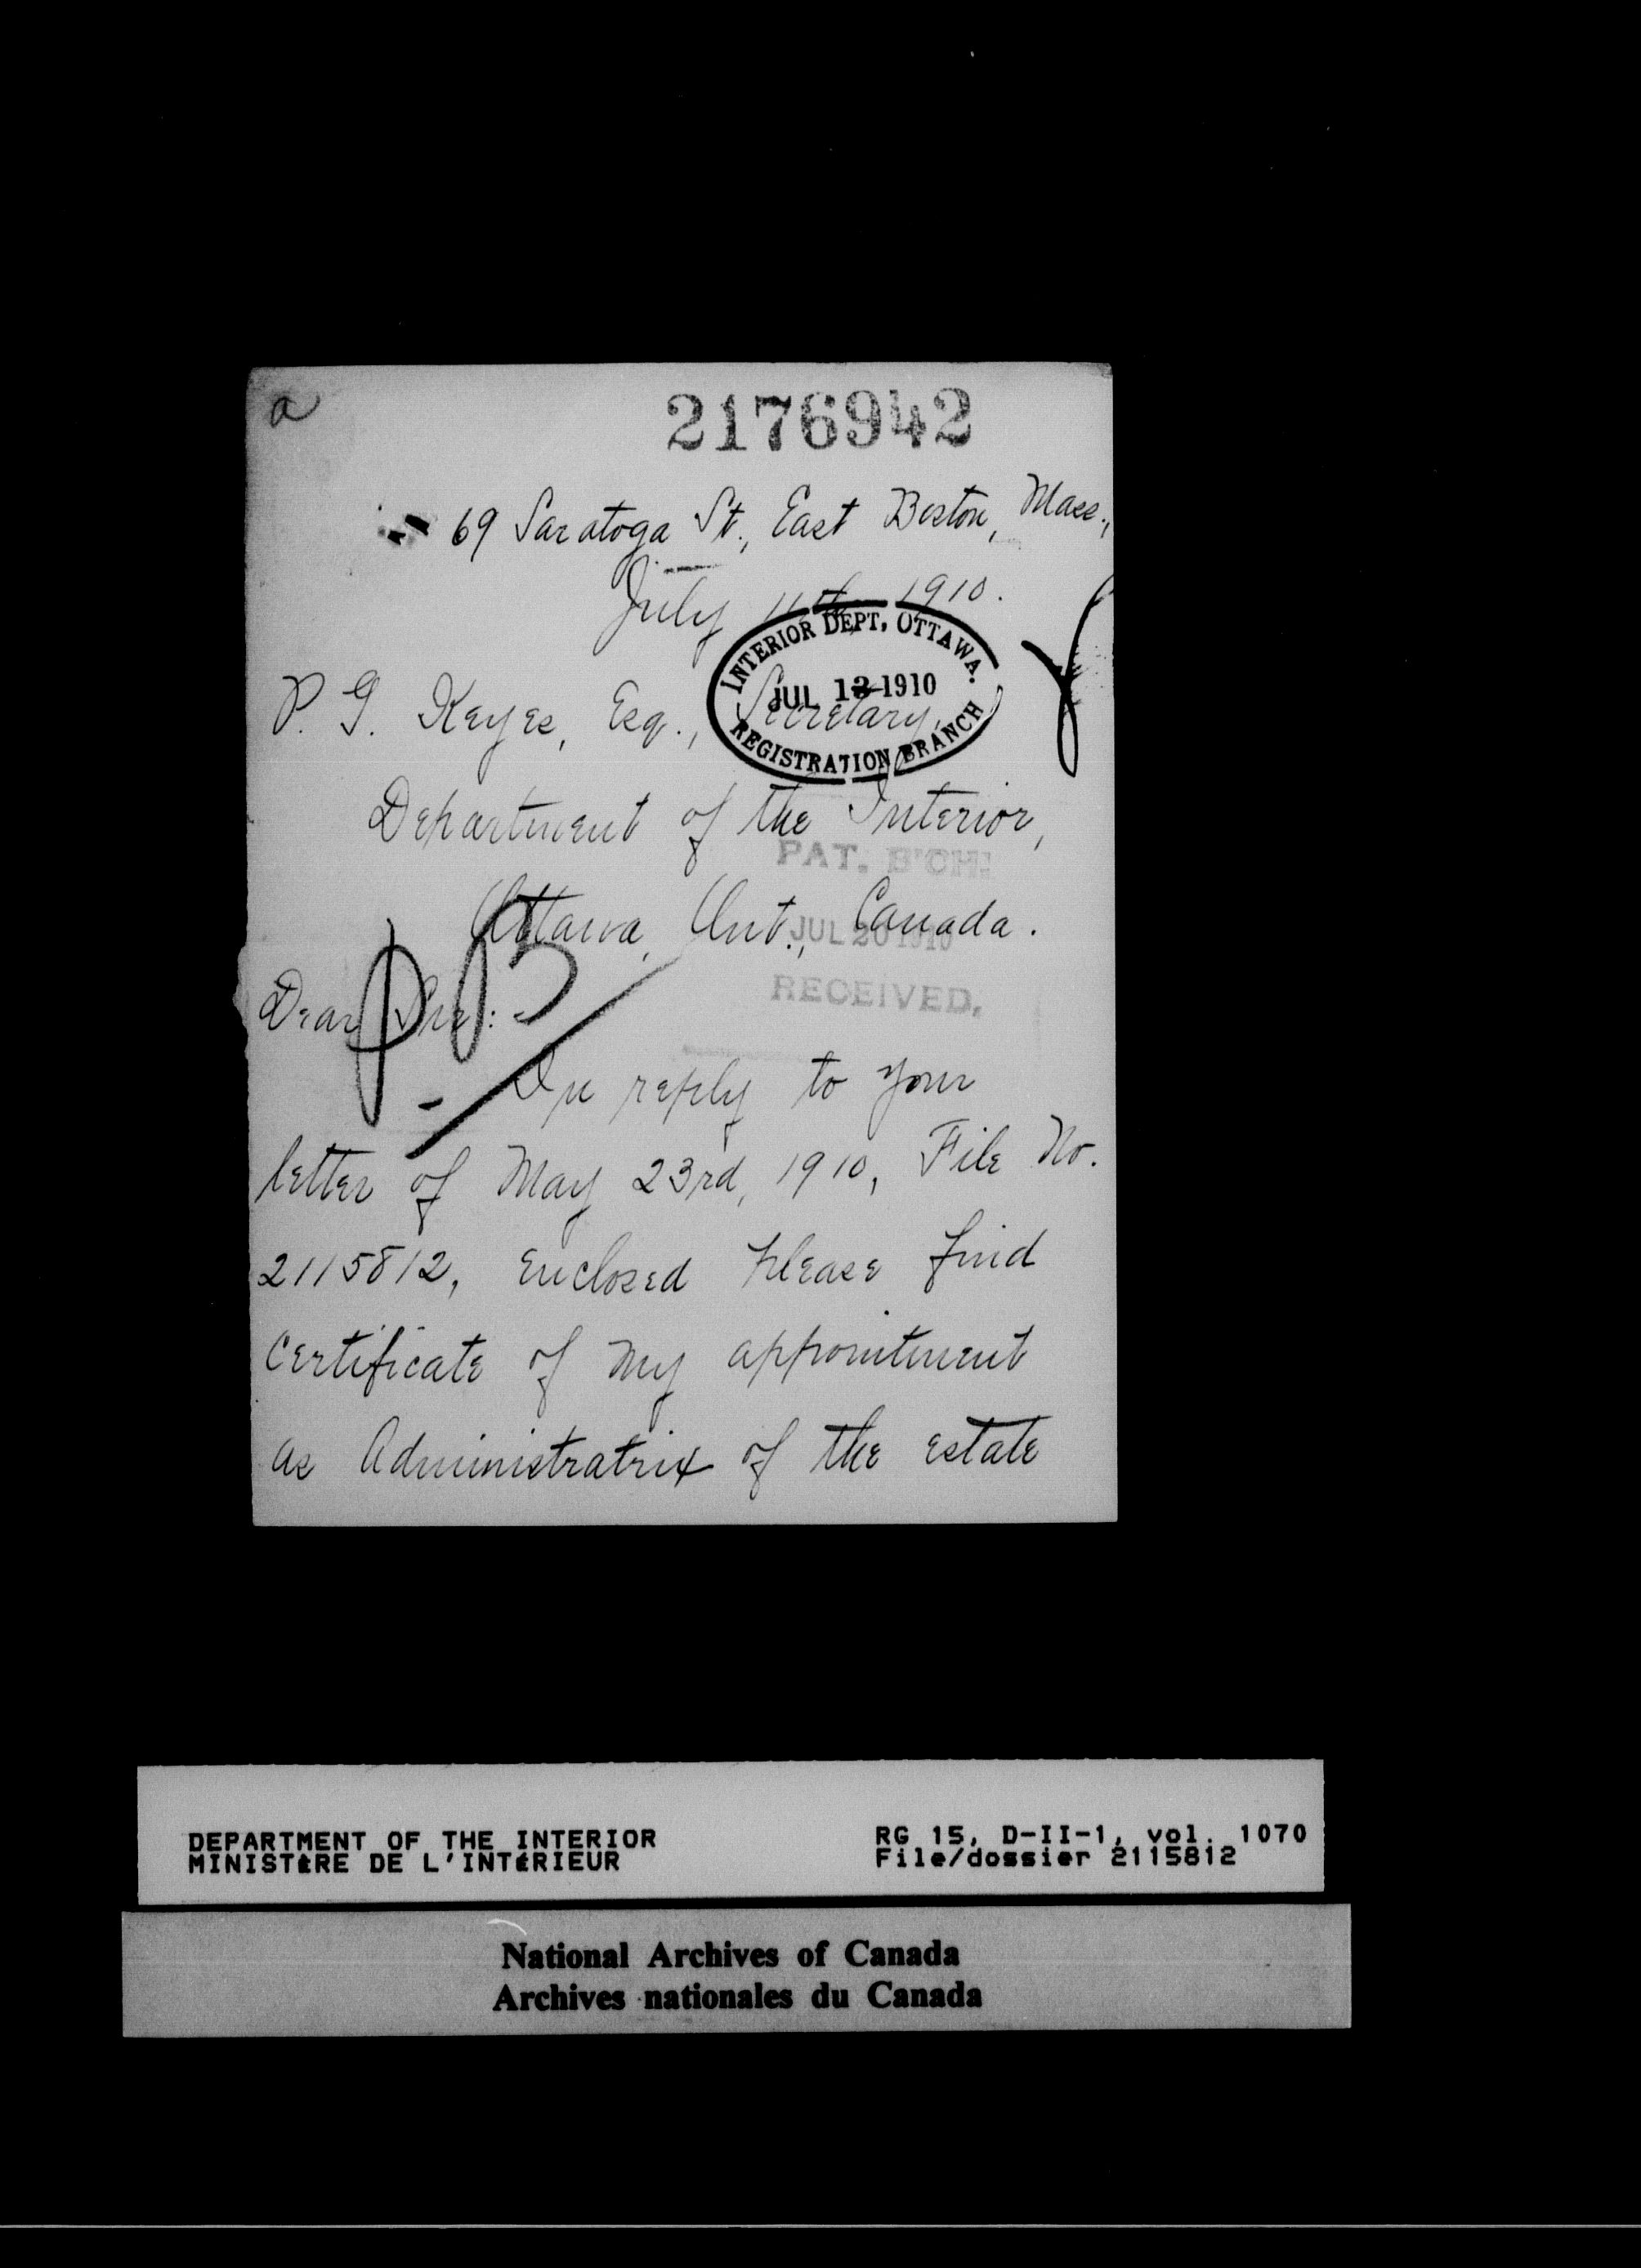 a
2176942
69 Saratoga St., East Boston, Mass.,
July 11th, 1910.
INTERIOR DEPT, OTTAWA.
JUL 13 1910
REGISTRATION BRANCH
P. G. Keyes, Esq., Secretary,
Department of the Interior,
PAT. B'CH:
Ottawa, Ont., Canada.
JUL 20 1910
RECEIVED.
Dear Sir:-
In reply to your
letter of May 23rd, 1910, File No.
2115812, enclosed please find
certificate of my appointment
as Administratrix of the estate
DEPARTMENT OF THE INTERIOR
MINISTÈRE DE L'INTÉRIEUR
RG 15, D-II-1, vol. 1070
File/dossier 2115812
National Archives of Canada
Archives nationales du Canada